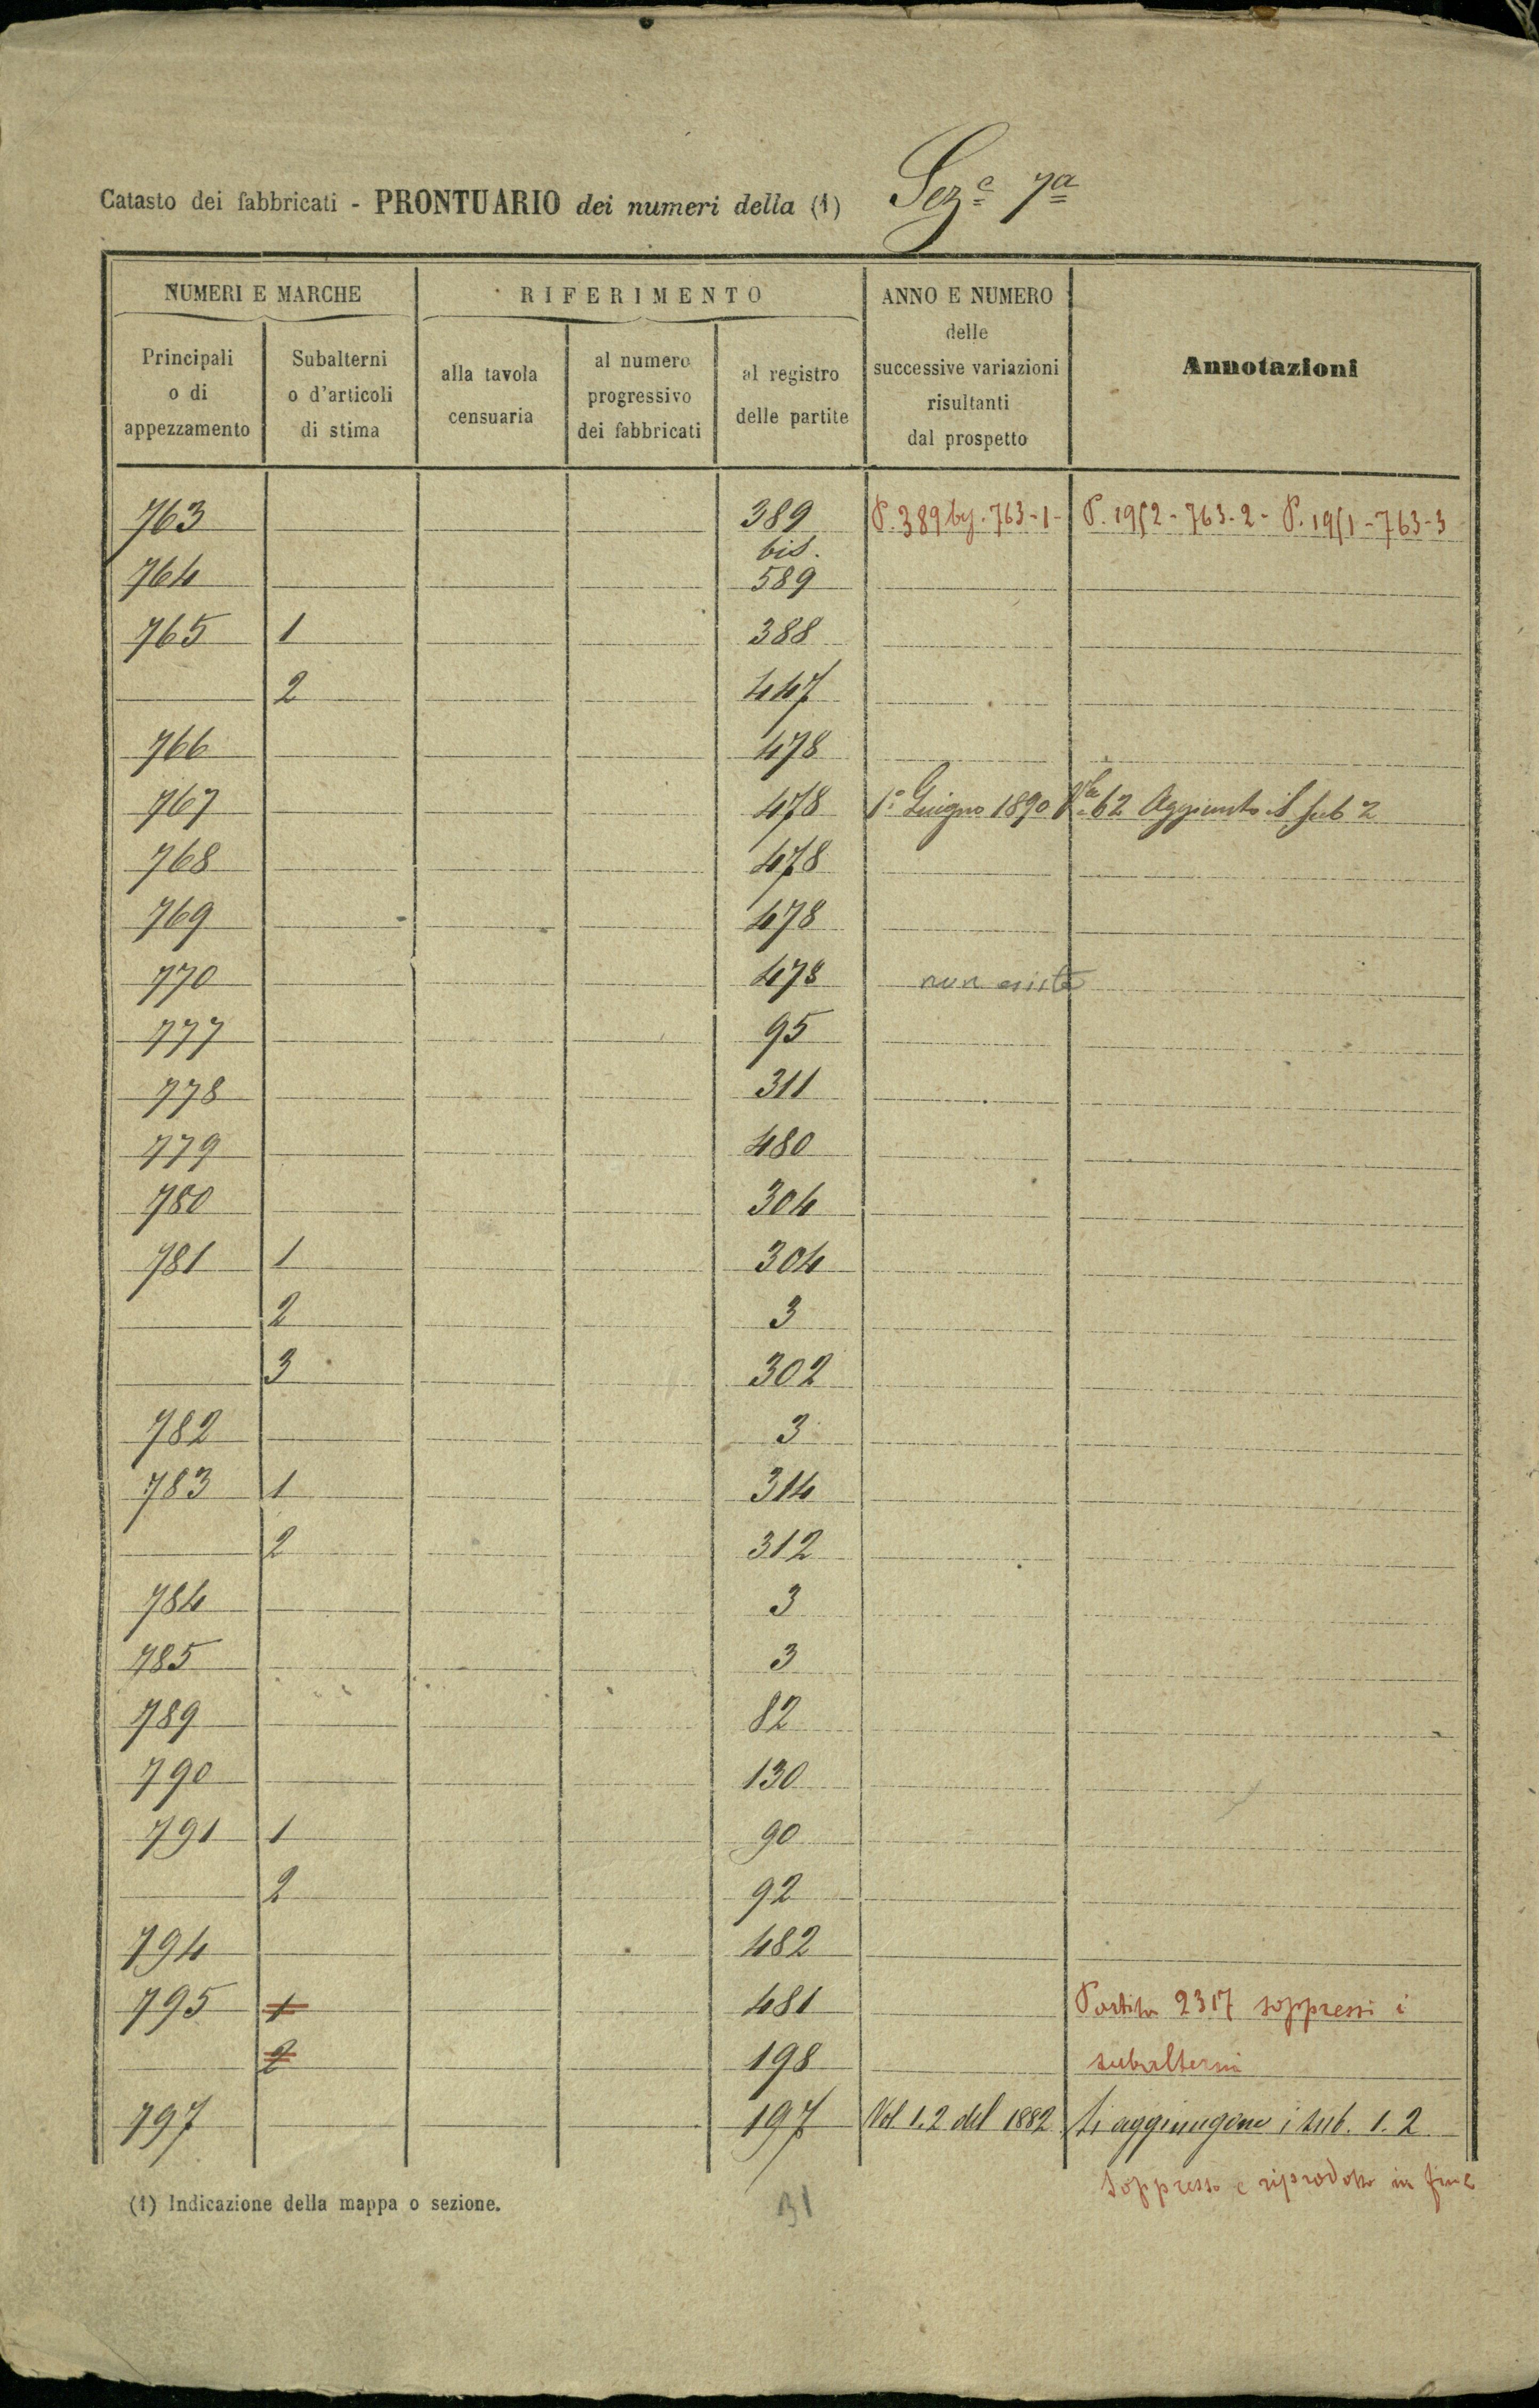 Catasto dei fabbricati - PRONTUARIO dei numeri della (1) Sez.e 7a
NUMERI E MARCHE
RIFERIMENTO
ANNO E NUMERO
delle
successive variazioni
risultanti
dal prospetto
Annotazioni
Principali
o di
appezzamento
Subalterni
o d'articoli
di stima
alla tavola
censuaria
al numero
progressivo
dei fabbricati
al registro
delle partite
763 389 P. 389 763-1- P. 1952-763-2- P. 1951-763-3
bis.
764 589
765 1 388
2 447
766 478
767 478 1° Giugno 1890 62 Aggiunto il sub 2
768 478
769 478
770 478 non esiste
777 95
778 311
779 480
780 304
781 1 304
2 3
3 302
782 3
783 1 314
2 312
784 3
785 3
789 82
790 130
791 1 90
2 92
794 482
795 1 481 Partita 2317 soppressi i
2 198 subalterni
797 197 Vol 1.2 del 1882 Si aggiungono i sub. 1.2
soppresso e riprodotto in fine
(1) Indicazione della mappa o sezione.
31